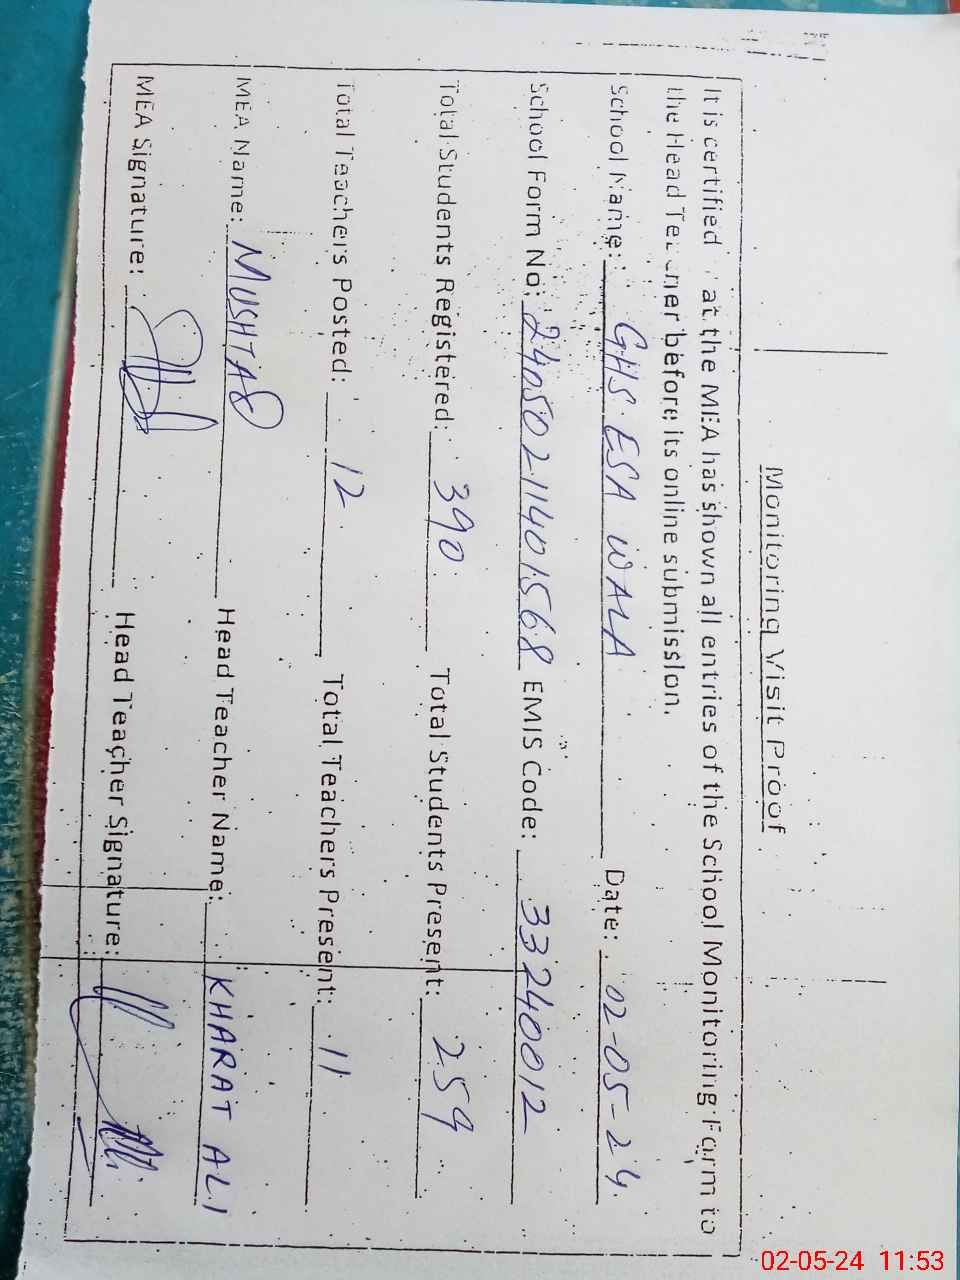 Monitoring Visit Proof
It is certified at the MEA has shown all entries of the School Monitoring Form to
the Head Teacher before its online submission.
School Name: GHS ESA WALA Date: 02-05-24
School Form No: 24050211401568 EMIS Code: 33240012
Total Students Registered: 390 Total Students Present: 259
Total Teachers Posted: 12 Total Teachers Present: 11
MEA Name: MUSHTAQ Head Teacher Name: KHARAT ALI
MEA Signature: Head Teacher Signature:
02-05-24 11:53